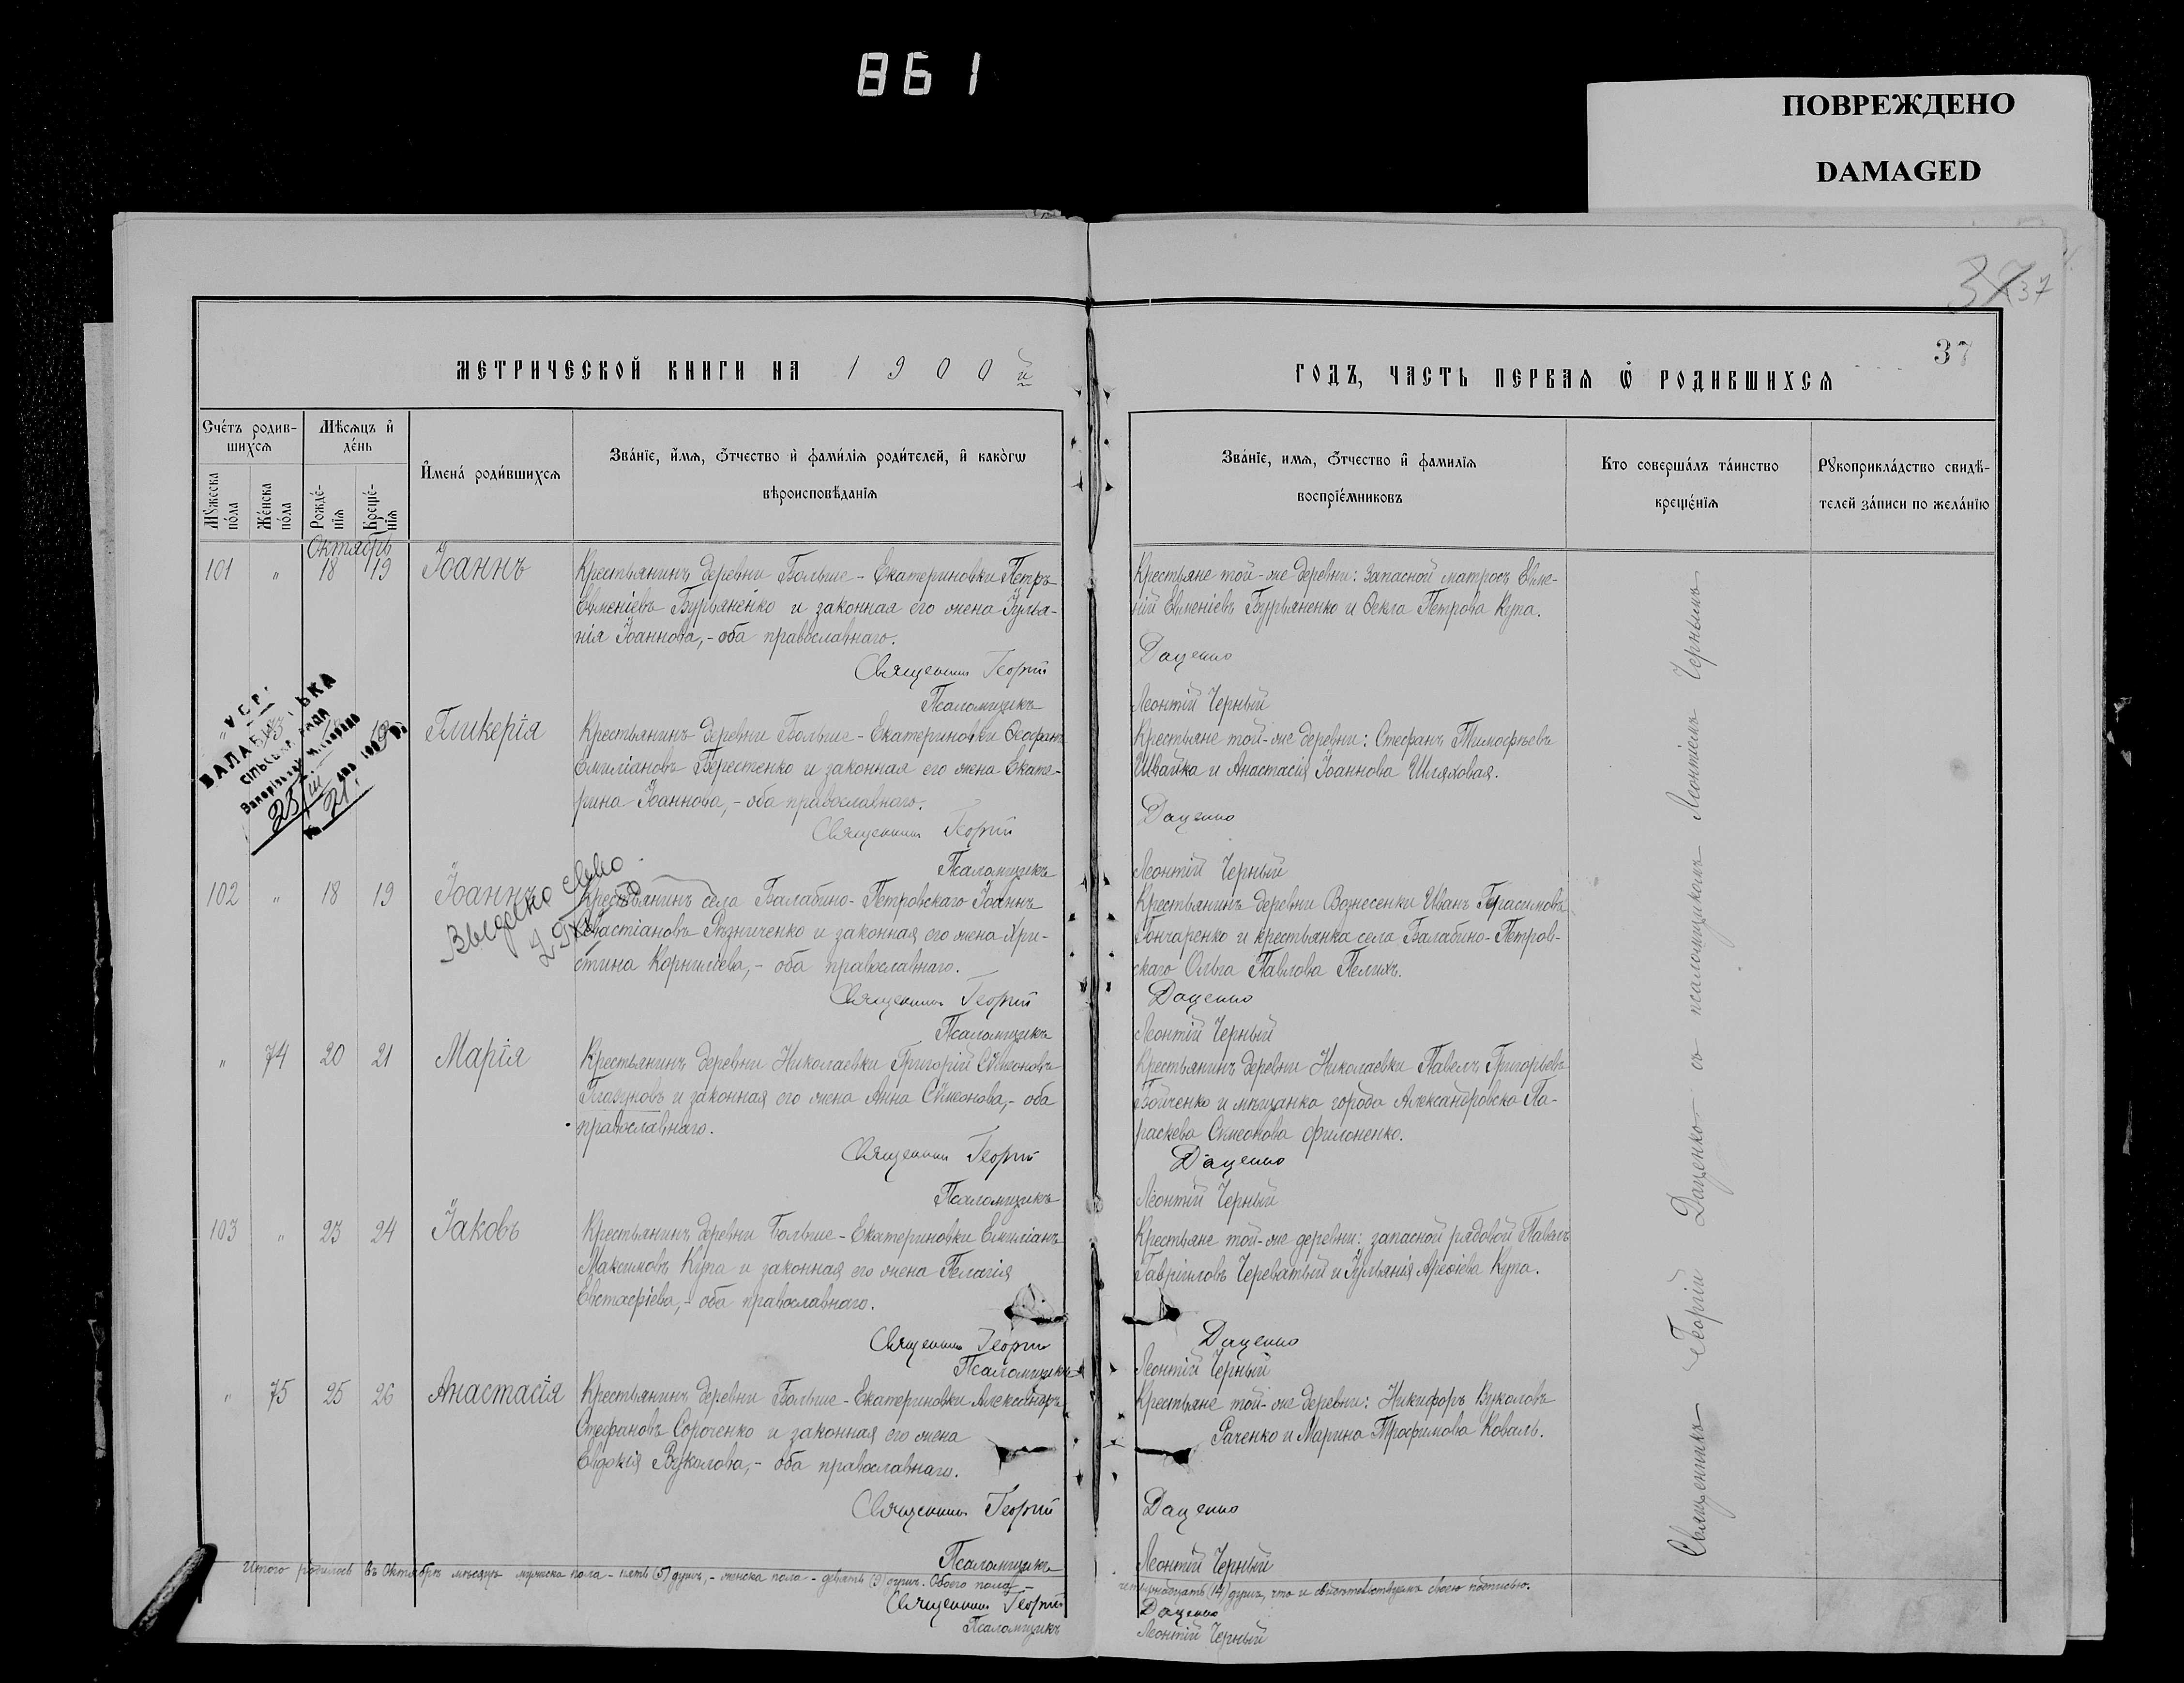 861
ПОВРЕЖДЕНО
DAMAGED
37 37
37
МЕТРИЧЕСКОЙ КНИГИ НА 1900й
ГОДЪ, ЧАСТЬ ПЕРВАЯ Ѡ РОДИВШИХСЯ
Счéтъ родив-
шихсѧ
Мѣсѧцъ и҆
дéнь
Мꙋжеска
пóла
Жéнска
пóла
Рождé-
нїѧ
Крещé-
нїѧ
И҆мена́ роди́вшихсѧ
Зва́нїе, и҆́мѧ, ѻ҆́тчество и҆ фами́лїѧ роди́телей, и҆ како́гѡ
вѣроисповѣ́данїѧ
Зва́нїе, имѧ, ѻ҆́тчество и҆ фамилїѧ
воспрїе́мниковъ
Кто соверша́лъ та́инство
креще́нїѧ
Рꙋкоприкла́дство свидѣ́-
телей за́писи по жела́нїю
Октябрь
101 " 18 19 Іоаннъ
Крестьянинъ деревни Больше-Екатериновки Петръ
Евменіевъ Бурьяненко и законная его жена Іулья-
нія Іоаннова,- оба православнаго.
Священникъ Георгій
Псаломщикъ
Крестьяне той-же деревни: Запасной матросъ Евме-
ній Евменіевъ Бурьяненко и Ѳекла Петрова Купа.
Даценко
Леонтій Черный
УСР
БАЛАБ СЬКА
СІЛЬСЬКА РАДА
25/III
№ 21
19 Гликерія
Крестьянинъ деревни Больше-Екатериновки Ѳеофанъ
Емиліановъ Берестенко и законная его жена Екате-
рина Іоаннова,- оба православнаго.
Священникъ Георгій
Псаломщикъ
Крестьяне той-же деревни: Стефанъ Тимофѣевъ
Швайка и Анастасія Іоаннова Шляховая.
Даценко
Леонтій Черный
102 " 18 19 Іоаннъ
Выдано
Крестьянинъ села Балабино-Петровскаго Іоаннъ
Севастіановъ Рѣзниченко и законная его жена Хри-
стина Корниліева,- оба православнаго.
Священникъ Георгій
Псаломщикъ
Крестьянинъ деревни Вознесенки Иванъ Герасимовъ
Гончаренко и крестьянка села Балабино-Петров-
скаго Ольга Павлова Пелихъ.
Даценко
Леонтій Черный
" 74 20 21 Марія
Крестьянинъ деревни Николаевки Григорій Сѵмеоновъ
Глазуновъ и законная его жена Анна Сѵмеонова,- оба
православнаго.
Священникъ Георгій
Псаломщикъ
Крестьянинъ деревни Николаевки Павелъ Григорьевъ
Бойченко и мѣщанка города Александровска Па-
раскева Симеонова Филоненко.
Даценко
Леонтій Черный
103 " 23 24 Іаковъ
Крестьянинъ деревни Больше-Екатериновки Емиліанъ
Максимовъ Купа и законная его жена Пелагія
Евстафіева,- оба православнаго.
Священникъ Георгій
Псаломщикъ
Крестьяне той-же деревни: запасной рядовой Павелъ
Гавріиловъ Череватый и Іульянія Арефіева Купа.
Даценко
Леонтій Черный
" 75 25 26 Анастасія
Крестьянинъ деревни Больше-Екатериновки Александръ
Стефановъ Сороченко и законная его жена
Евдокія Вуколова,- оба православнаго.
Священникъ Георгій
Псаломщикъ
Крестьяне той-же деревни: Никифоръ Вуколовъ
Раченко и Марина Трофимова Коваль.
Даценко
Леонтій Черный
Священникъ Георгій Даценко съ псаломщикомъ Леонтіемъ Чернымъ
Итого родилось въ Октябрѣ мѣсяцѣ мужеска пола - пять (5) душъ,- женска пола - девять (9) душъ. Обоего пола -
четырнадцать (14) душъ, что и свидѣтельствуемъ своею подписью.
Священникъ Георгій
Даценко
Псаломщикъ
Леонтій Черный